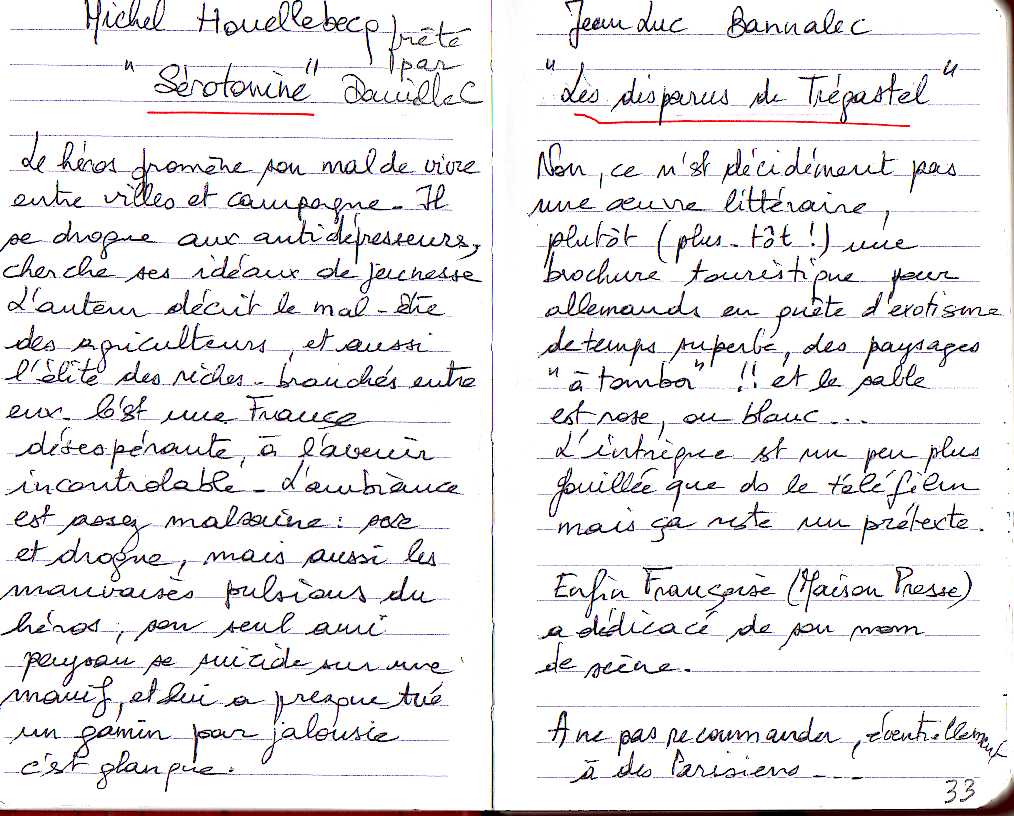 Michel Houellebecq prêté
par
"Sérotonine" Danielle C
Le héros promène son mal de vivre
entre villes et campagne - Il
se drogue aux antidépresseurs,
cherche ses idéaux de jeunesse
L'auteur décrit le mal-être
des agriculteurs, et aussi
l'élite des riches - branchés entre
eux - C'est une France
désespérante, à l'avenir
incontrolable - L'ambiance
est assez malsaine : sexe
et drogue, mais aussi les
mauvaises pulsions du
héros, son seul ami
paysan se suicide sur une
manif, et lui a presque tué
un gamin par jalousie
c'est glauque.
Jean Luc Bannalec
"Les disparus de Trégastel"
Non, ce n'est décidément pas
une œuvre littéraire,
plutôt (plus-tôt !) une
brochure touristique pour
allemands en quête d'exotisme
de temps superbe, des paysages
"à tomber" !! et le sable
est rose, ou blanc...
L'intrigue est un peu plus
fouillée que ds le téléfilm
mais ça reste un prétexte.
Enfin Françoise (Maison Presse)
a dédicacé de son nom
de scène.
A ne pas recommander, éventuellement
à des Parisiens ----
33